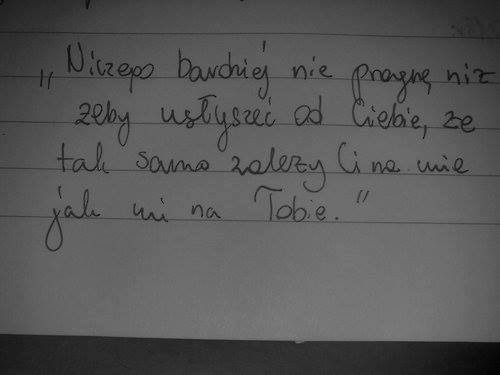 „Niczego bardziej nie pragnę, niż
żeby usłyszeć od Ciebie, że
tak samo zależy Ci na mnie
jak mi na Tobie."